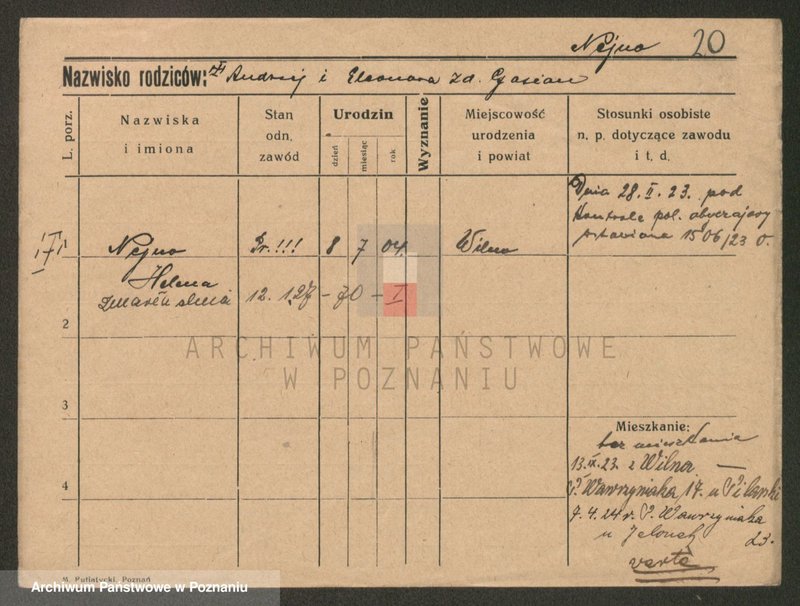 Nejno 20
Nazwisko rodziców: Andrzej i Eleonora zd. Gasian
L. porz.
Nazwiska
i imiona
Stan
odn.
zawód
Urodzin
dzień
miesiąc
rok
Wyznanie
Miejscowość
urodzenia
i powiat
Stosunki osobiste
n. p. dotyczące zawodu
i t. d.
Dnia 28. II. 23. pod
kontrolę pol. obyczajowy
stawiona 1506/23 O.
Nejno
Helena
8 7 04.
Wilno
zmarła dnia 12. 1. 27 - 70 - I
2
ARCHIWUM PAŃSTWOWE
W POZNANIU
3
4
Mieszkanie:
bez mieszkania
13. IX. 23. z Wilna. —
P. Wawrzyniaka 17. u Pilarski
7. 4. 24 r. P. Wawrzyniaka
23.
verte
M. Putiatycki, Poznań
Archiwum Państwowe w Poznaniu